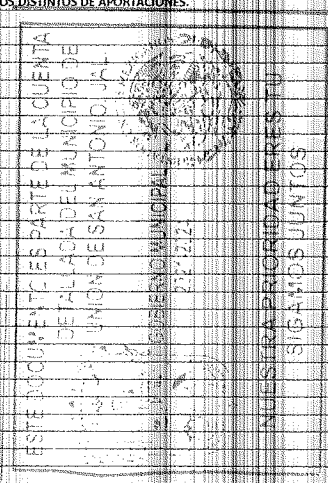 OS DISTINTOS DE APORTACIONES.
ESTE DOCUMENTO ES PARTE DE LA CUENTA
DETALLADA DEL MUNICIPIO DE
UNION DE SAN ANTONIO, JAL.
GOBIERNO MUNICIPAL
2021-2024
NUESTRA PRIORIDAD ERES TU
SIGAMOS JUNTOS